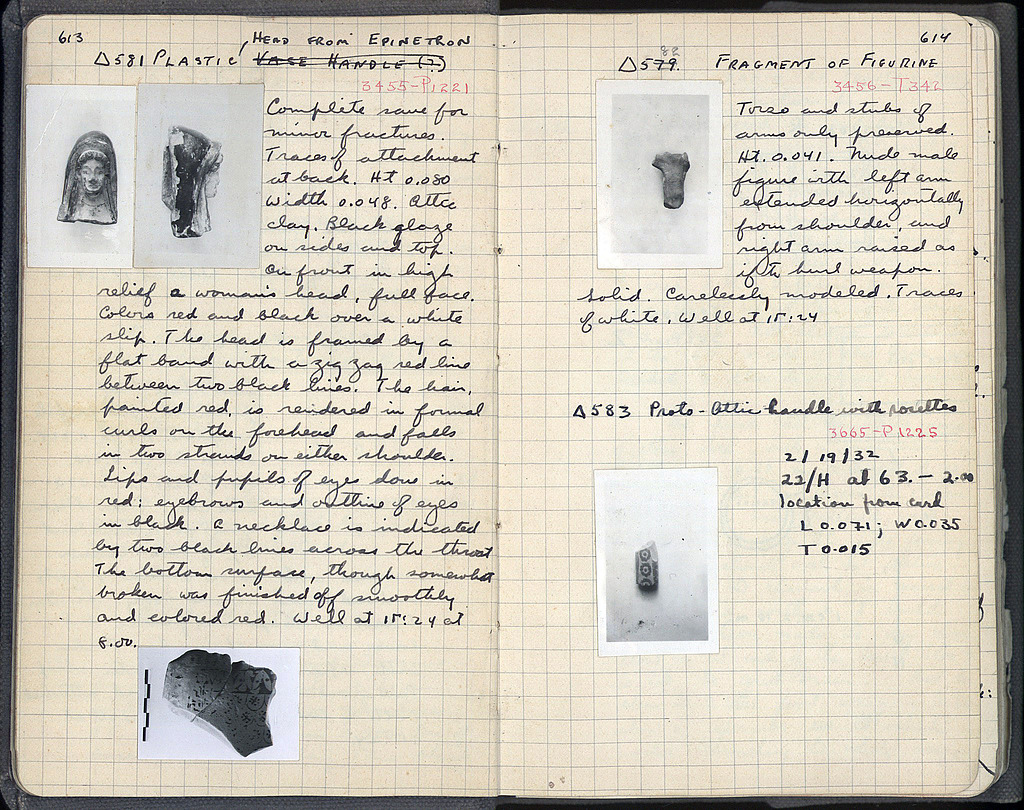 613
HEAD FROM EPINETRON
Δ581 PLASTIC, VASE HANDLE (?)
3455-P1221
Complete save for
minor fractures.
Traces of attachment
at back. Ht 0.080
Width 0.048. Attic
clay. Black glaze
on sides and top.
On front in high
relief a woman's head, full face.
Colors red and black over a white
slip. The head is framed by a
flat band with a zig zag red line
between two black lines. The hair,
painted red, is rendered in formal
curls on the forehead and falls
in two strands on either shoulder.
Lips and pupils of eyes done in
red; eyebrows and outline of eyes
in black. A necklace is indicated
by two black lines across the throat
The bottom surface, though somewhat
broken was finished off smoothly
and colored red. Well at 15:24 at
8.00.
614
82
Δ579. FRAGMENT OF FIGURINE
3456-T342
Torso and stubs of
arms only preserved.
Ht. 0.041. Nude male
figure with left arm
extended horizontally
from shoulder, and
right arm raised as
if to hurl weapon.
Solid. Carelessly modeled. Traces
of white. Well at 15:24
Δ583 Proto-Attic handle with rosettes
3665-P1225
2/19/32
22/H at 63.-2.00
location from card
L 0.071; W 0.035
T 0.015